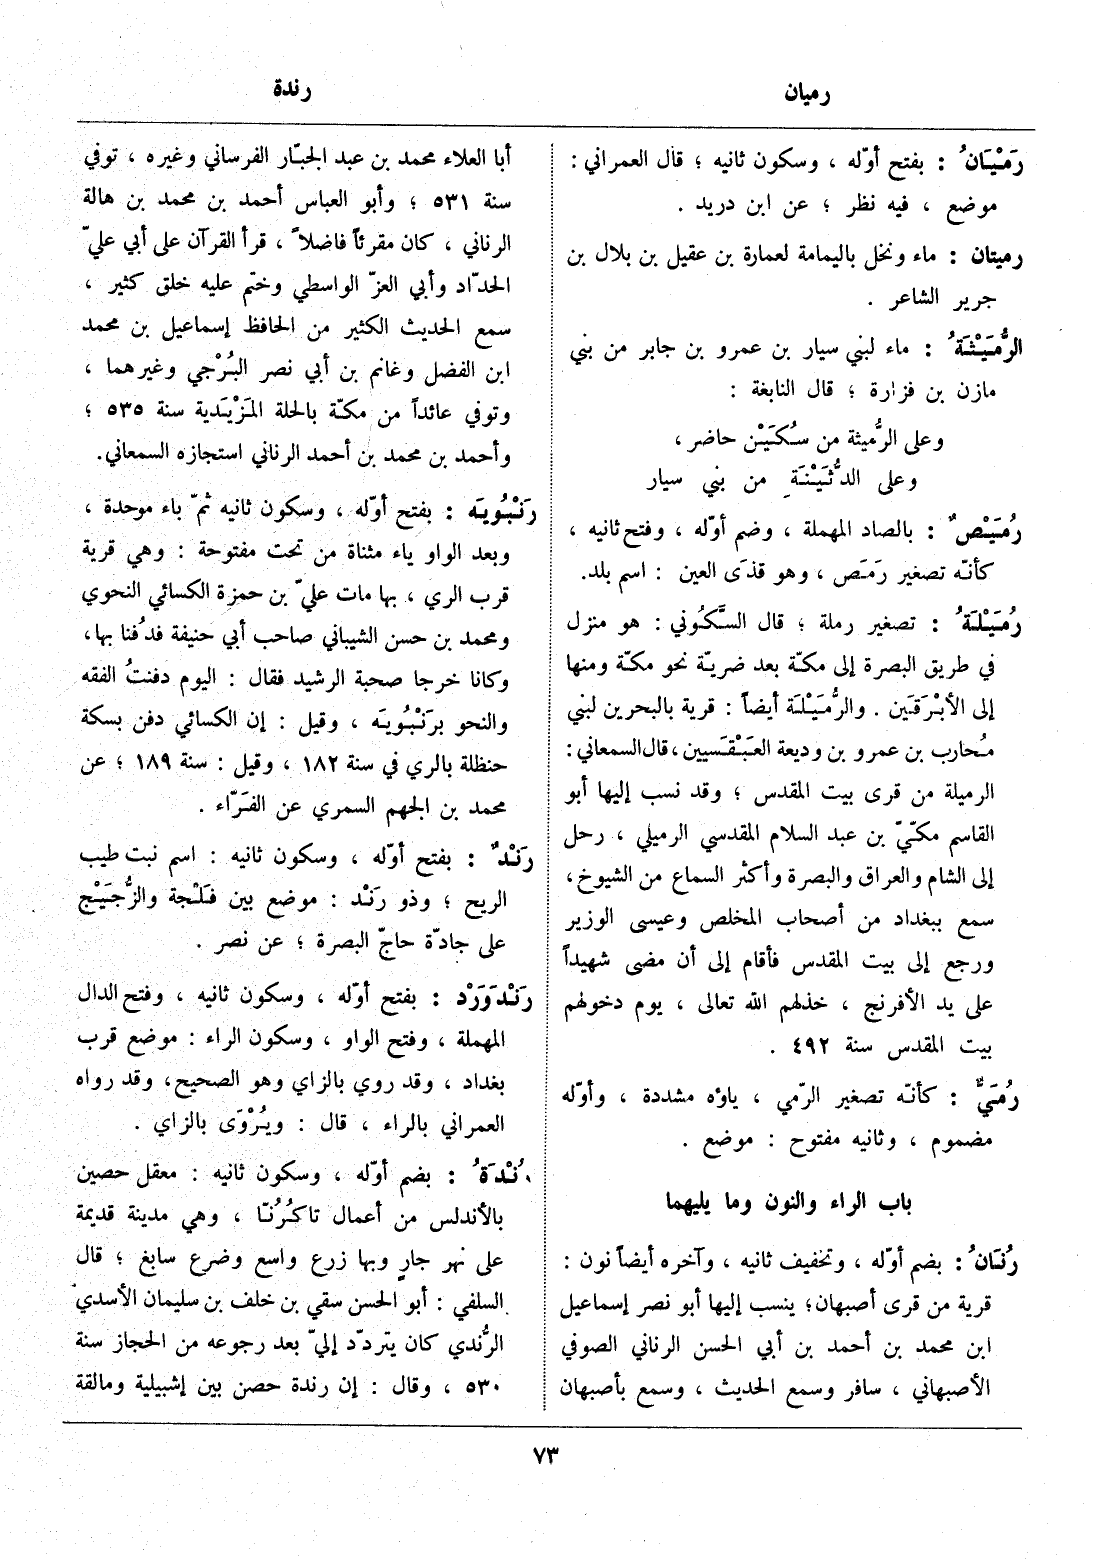 رميان
رندة
رَمْيَانُ : بفتح أوّله ، وسكون ثانيه ؛ قال العمراني :
موضع ، فيه نظر ؛ عن ابن دريد .
رميتان : ماء ونخل باليمامة لعمارة بن عقيل بن بلال بن
جرير الشاعر .
الرُّمَيْثَةُ : ماء لبني سيار بن عمرو بن جابر من بني
مازن بن فزارة ؛ قال النابغة :
وعلى الرُّميثة من سُكَيْن حاضر ،
وعلى الدُّثَيْنَةِ من بني سيار
رُمَيْصٌ : بالصاد المهملة ، وضم أوّله ، وفتح ثانيه ،
كأنّه تصغير رَمَص ، وهو قذَى العين : اسم بلد.
رُمَيْلَةُ : تصغير رملة ؛ قال السَّكُوني : هو منزل
في طريق البصرة إلى مكّة بعد ضريّة نحو مكّة ومنها
إلى الأبْرَقَين . والرُّمَيْلَة أيضاً : قرية بالبحرين لبني
مُحارب بن عمرو بن وديعة العَبْقَسيين ، قال السمعاني :
الرميلة من قرى بيت المقدس ؛ وقد نسب إليها أبو
القاسم مكّيّ بن عبد السلام المقدسي الرميلي ، رحل
إلى الشام والعراق والبصرة وأكثر السماع من الشيوخ ،
سمع ببغداد من أصحاب المخلص وعيسى الوزير
ورجع إلى بيت المقدس فأقام إلى أن مضى شهيداً
على يد الأفرنج ، خذلهم الله تعالى ، يوم دخولهم
بيت المقدس سنة ٤٩٢ .
رُمَيٌّ : كأنّه تصغير الرّمي ، ياؤه مشددة ، وأوّله
مضموم ، وثانيه مفتوح : موضع .
باب الراء والنون وما يليهما
رُنَانُ : بضم أوّله ، وتخفيف ثانيه ، وآخره أيضاً نون :
قرية من قرى أصبهان ؛ ينسب إليها أبو نصر إسماعيل
ابن محمد بن أحمد بن أبي الحسن الرناني الصوفي
الأصبهاني ، سافر وسمع الحديث ، وسمع بأصبهان
أبا العلاء محمد بن عبد الجبّار الفرساني وغيره ، توفي
سنة ٥٣١ ؛ وأبو العباس أحمد بن محمد بن هالة
الرناني ، كان مقرئاً فاضلاً ، قرأ القرآن على أبي عليّ
الحدّاد وأبي العزّ الواسطي وختم عليه خلق كثير ،
سمع الحديث الكثير من الحافظ إسماعيل بن محمد
ابن الفضل وغانم بن أبي نصر البُرْجي وغيرهما ،
وتوفي عائداً من مكّة بالحلة المَزْيَدية سنة ٥٣٥ ؛
وأحمد بن محمد بن أحمد الرناني استجازه السمعاني.
رَنْبُويَه : بفتح أوّله ، وسكون ثانيه ثمّ باء موحدة ،
وبعد الواو ياء مثناة من تحت مفتوحة : وهي قرية
قرب الري ، بها مات عليّ بن حمزة الكسائي النحوي
ومحمد بن حسن الشيباني صاحب أبي حنيفة فدُفنا بها،
وكانا خرجا صحبة الرشيد فقال : اليوم دفنتُ الفقه
والنحو برَنْبُويَه ، وقيل : إن الكسائي دفن بسكة
حنظلة بالري في سنة ١٨٢ ، وقيل : سنة ١٨٩ ؛ عن
محمد بن الجهم السمري عن الفَرّاء .
رَنْدٌ : بفتح أوّله ، وسكون ثانيه : اسم نبت طيب
الريح ؛ وذو رَنْد : موضع بين فَلْجة والزُّجَيْج
على جادّة حاجّ البصرة ؛ عن نصر .
رَنْدَوَرْد : بفتح أوّله ، وسكون ثانيه ، وفتح الدال
المهملة ، وفتح الواو ، وسكون الراء : موضع قرب
بغداد ، وقد روي بالزاي وهو الصحيح، وقد رواه
العمراني بالراء ، قال : ويُرْوَى بالزاي .
رُنْدَةُ : بضم أوّله ، وسكون ثانيه : معقل حصين
بالأندلس من أعمال تاكُرُنّا ، وهي مدينة قديمة
على نهر جارٍ وبها زرع واسع وضرع سابغ ؛ قال
السلفي : أبو الحسن سقي بن خلف بن سليمان الأسدي
الرُّندي كان يتردّد إليّ بعد رجوعه من الحجاز سنة
٥٣٠ ، وقال : إن رندة حصن بين إشبيلية ومالقة
٧٣